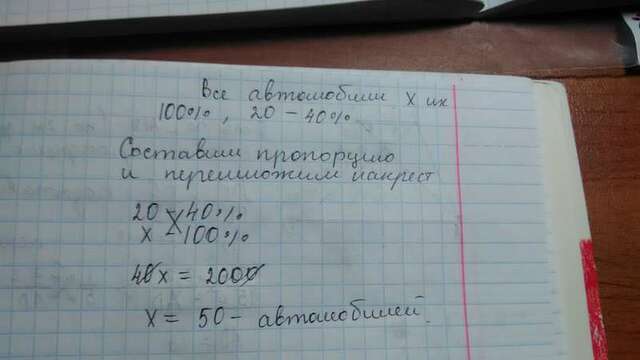 Все автомобили x их
100%, 20 - 40%
Составим пропорцию
и перемножим накрест
20 40%
x 100%
40x = 2000
x = 50 - автомобилей.